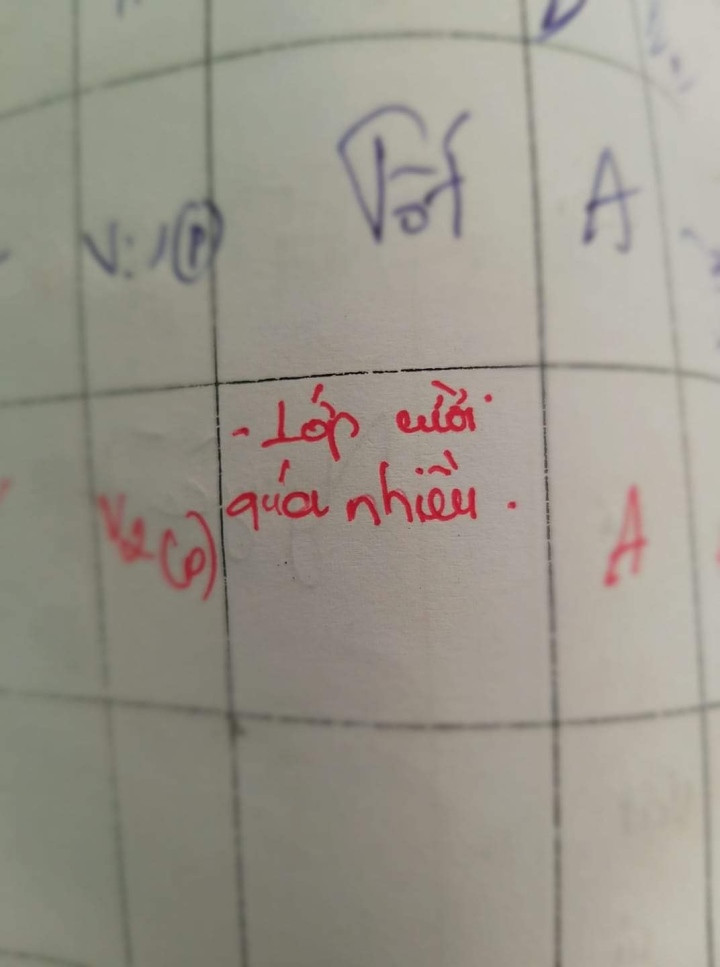 V: 1(P) Tốt A
- Lớp cười
quá nhiều.
V2 (P) A